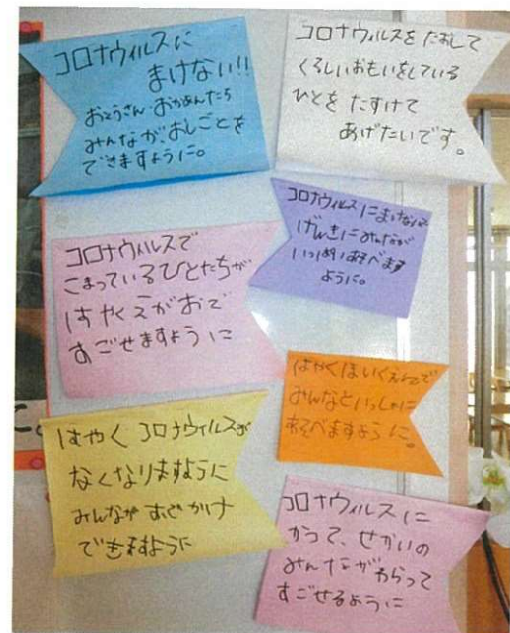 コロナウィルスに
まけない!!
おとうさん・おかあさんたち
みんなが、おしごとを
できますように。
コロナウィルスを たおして
くるしいおもいをしている
ひとを たすけて
あげたいです。
コロナウィルスにまけないで
げんきにみんなが
いっぱいあそべます
ように。
コロナウィルスで
こまっているひとたちが
はやくえがおで
すごせますように
はやくほいくえんで
みんなといっしょに
あそべますように。
はやく コロナウィルスが
なくなりますように
みんなが おでかけ
できますように
コロナウィルスに
かって、せかいの
みんながわらって
すごせるように